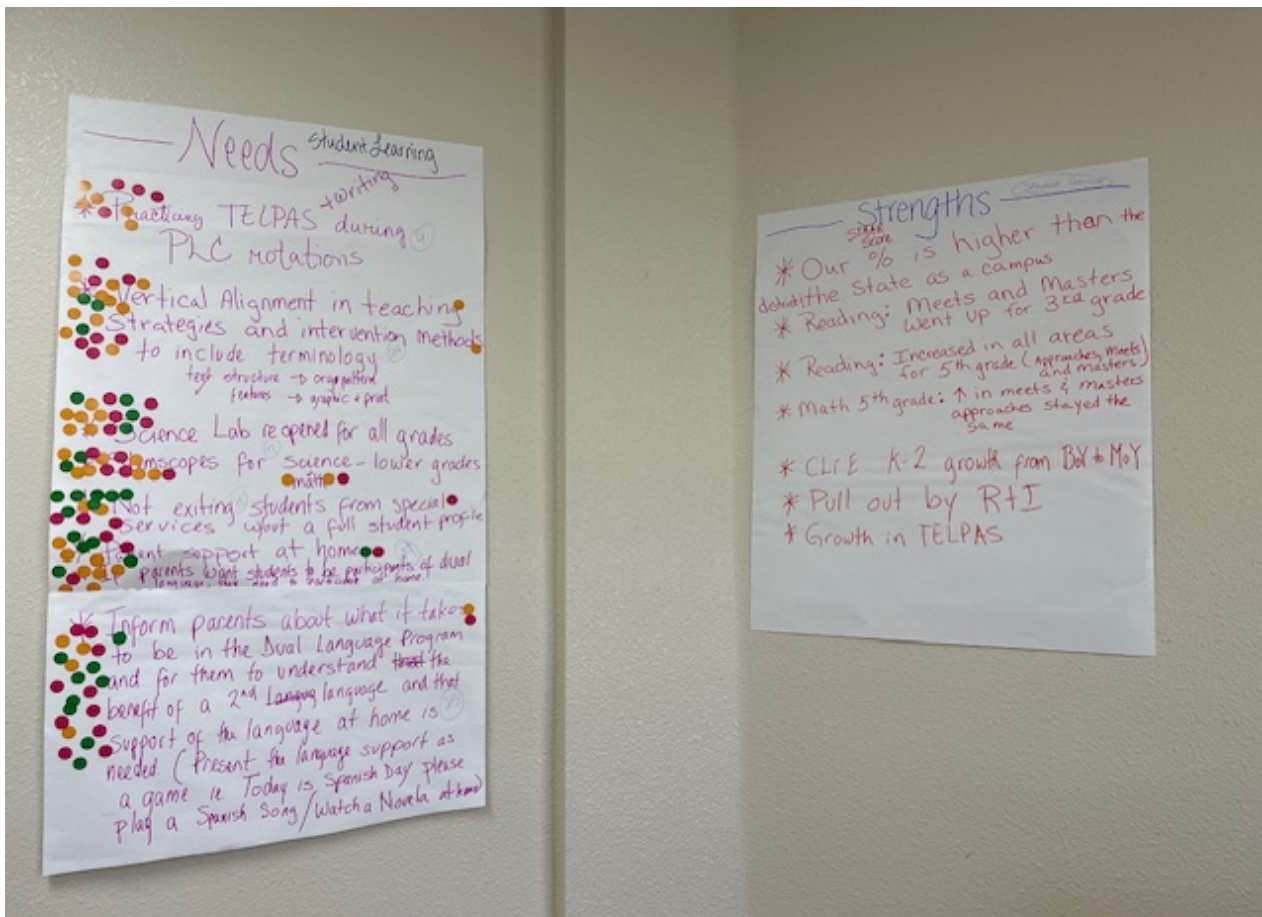 Needs Student Learning
* Practicing TELPAS + Writing during
PLC rotations
* Vertical Alignment in teaching
Strategies and intervention methods
to include terminology
text structure → org pattern
features → graphic + print
* Science Lab reopened for all grades
Stemscopes for science - lower grades
math
Not exiting students from special
services w/out a full student profile
Parent support at home
If parents want students to be participants of dual
language, they need to participate at home.
* Inform parents about what it takes
to be in the Dual Language Program
and for them to understand that the
benefit of a 2nd Langug language and that
Support of the language at home is
needed (Present the language support as
a game ie Today is Spanish Day please
play a Spanish Song/Watch a Novela at home)
Strengths Student Learning
score
* Our % is higher than the
the State as a campus
* Reading: Meets and Masters
went up for 3rd grade
* Reading: Increased in all areas
for 5th grade (Approaches, Meets
and masters)
* Math 5th grade: ↑ in meets & masters
approaches stayed the
same
* CLI E K-2 growth from BoY to MoY
* Pull out by RtI
* Growth in TELPAS